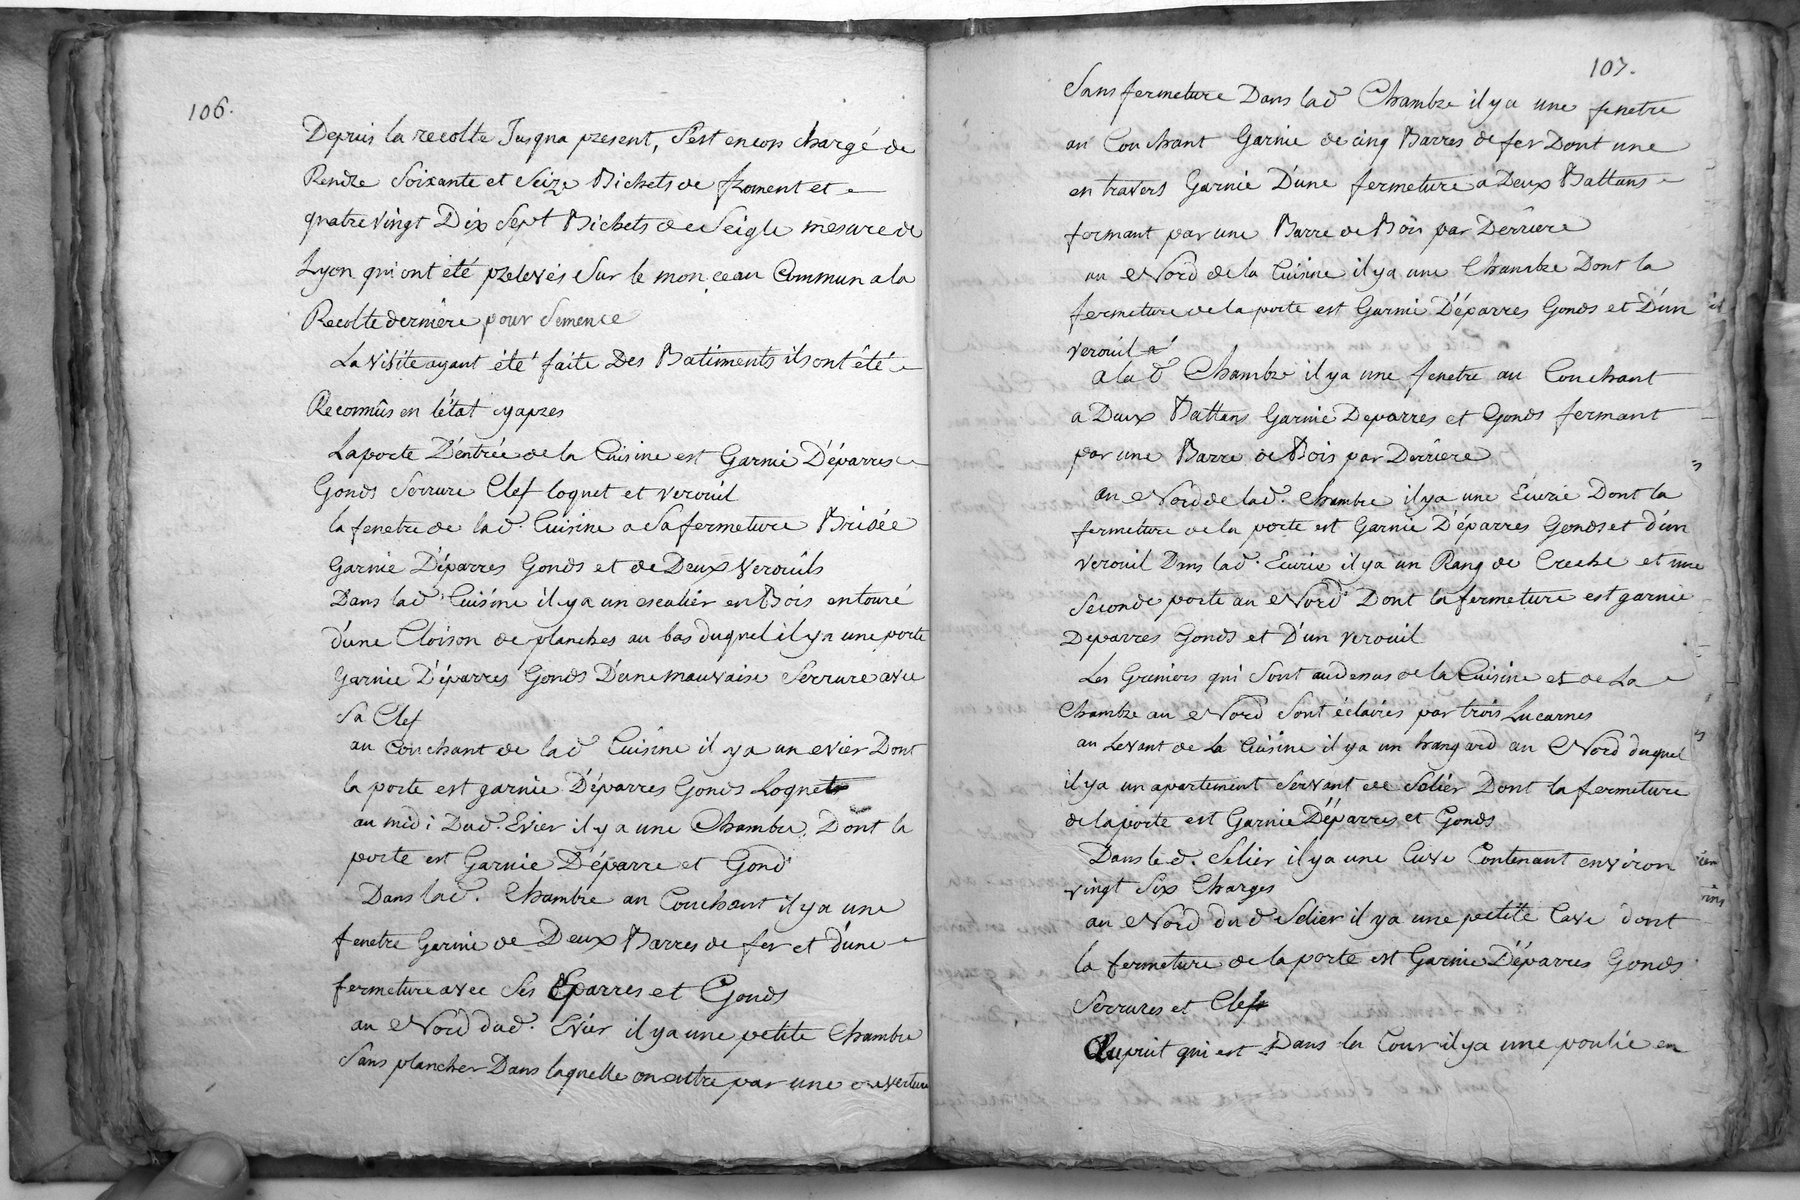 106.
Depuis la recolte Jusqua present, S'est encors chargé de
Rendre Soixante et Seize Bichets de froment et
quatre vingt Dix Sept Bichets de Seigle mesure de
Lyon qui ont été prelevés Sur le monceau Commun a la
Recolte derniere pour Semence
La visite ayant été faite Des Batiments ils ont êté
Reconnûs en l'état cyapres
La porte D'éntrée de la Cuisine est Garnie D'éparres
Gonds Serrure Clef loquet et verouil
la fenetre de lad. Cuisine a Sa fermeture Brisée
Garnie D'éparres Gonds et de Deux verouils
Dans lad Cuisine il y a un escalier en Bois entouré
d'une Cloison de planches au bas duquel il y a une porte
Garnie D'éparres Gonds D'une mauvaise Serrure avec
Sa Clef
au Couchant de lad Cuisine il y a un evier Dont
la porte est garnie D'éparres Gonds Loquet
au midi Dud. Evier il y a une Chambre. Dont la
porte est Garnie D'éparre et Gond
Dans lad. Chambre au Couchant il y a une
fenetre Garnie de Deux Barres de fer et d'une
fermeture avec Ses Eparres et Gonds
au Nord dud. Evier il y a une petite Chambre
Sans plancher Dans laquelle on entre par une ouverture
107.
Sans fermeture Dans lad Chambre il y a une fenetre
au Couchant Garnie de cinq Barres de fer Dont une
en travers Garnie D'une fermeture a Deux Battans
formant par une Barre de Bois par Derriere
au Nord de la Cuisine il y a une Chambre Dont la
fermeture de la porte est Garnie D'éparres Gonds et D'un
verouil
A la d Chambre il y a une fenetre au Couchant
a Deux Battans Garnie Deparres et Gonds fermant
par une Barre de Bois par Derriere
au Nord de lad. Chambre il y a une Ecurie Dont la
fermeture de la porte est Garnie D'éparres Gonds et d'un
verouil Dans lad. Ecurie il y a un Rang de Creche et une
Seconde porte au Nord Dont la fermeture est garnie
Deparres Gonds et D'un verouil
Les Greniers qui Sont audesus de la Cuisine et de La
Chambre au Nord Sont éclairés par trois Lucarnes
au Levant de La Cuisine il y a un hangard au Nord duquel
il y a un apartement Servant de Selier Dont la fermeture
de la porte est Garnie D'éparres et Gonds
Dans le d. Selier il y a une Cuve Contenant environ
vingt Six Charges
au Nord du d Selier il y a une petite Cave dont
la fermeture de la porte est Garnie D'éparres Gonds
Serrures et Clef
Au puit qui est Dans la Cour il y a une poulie en